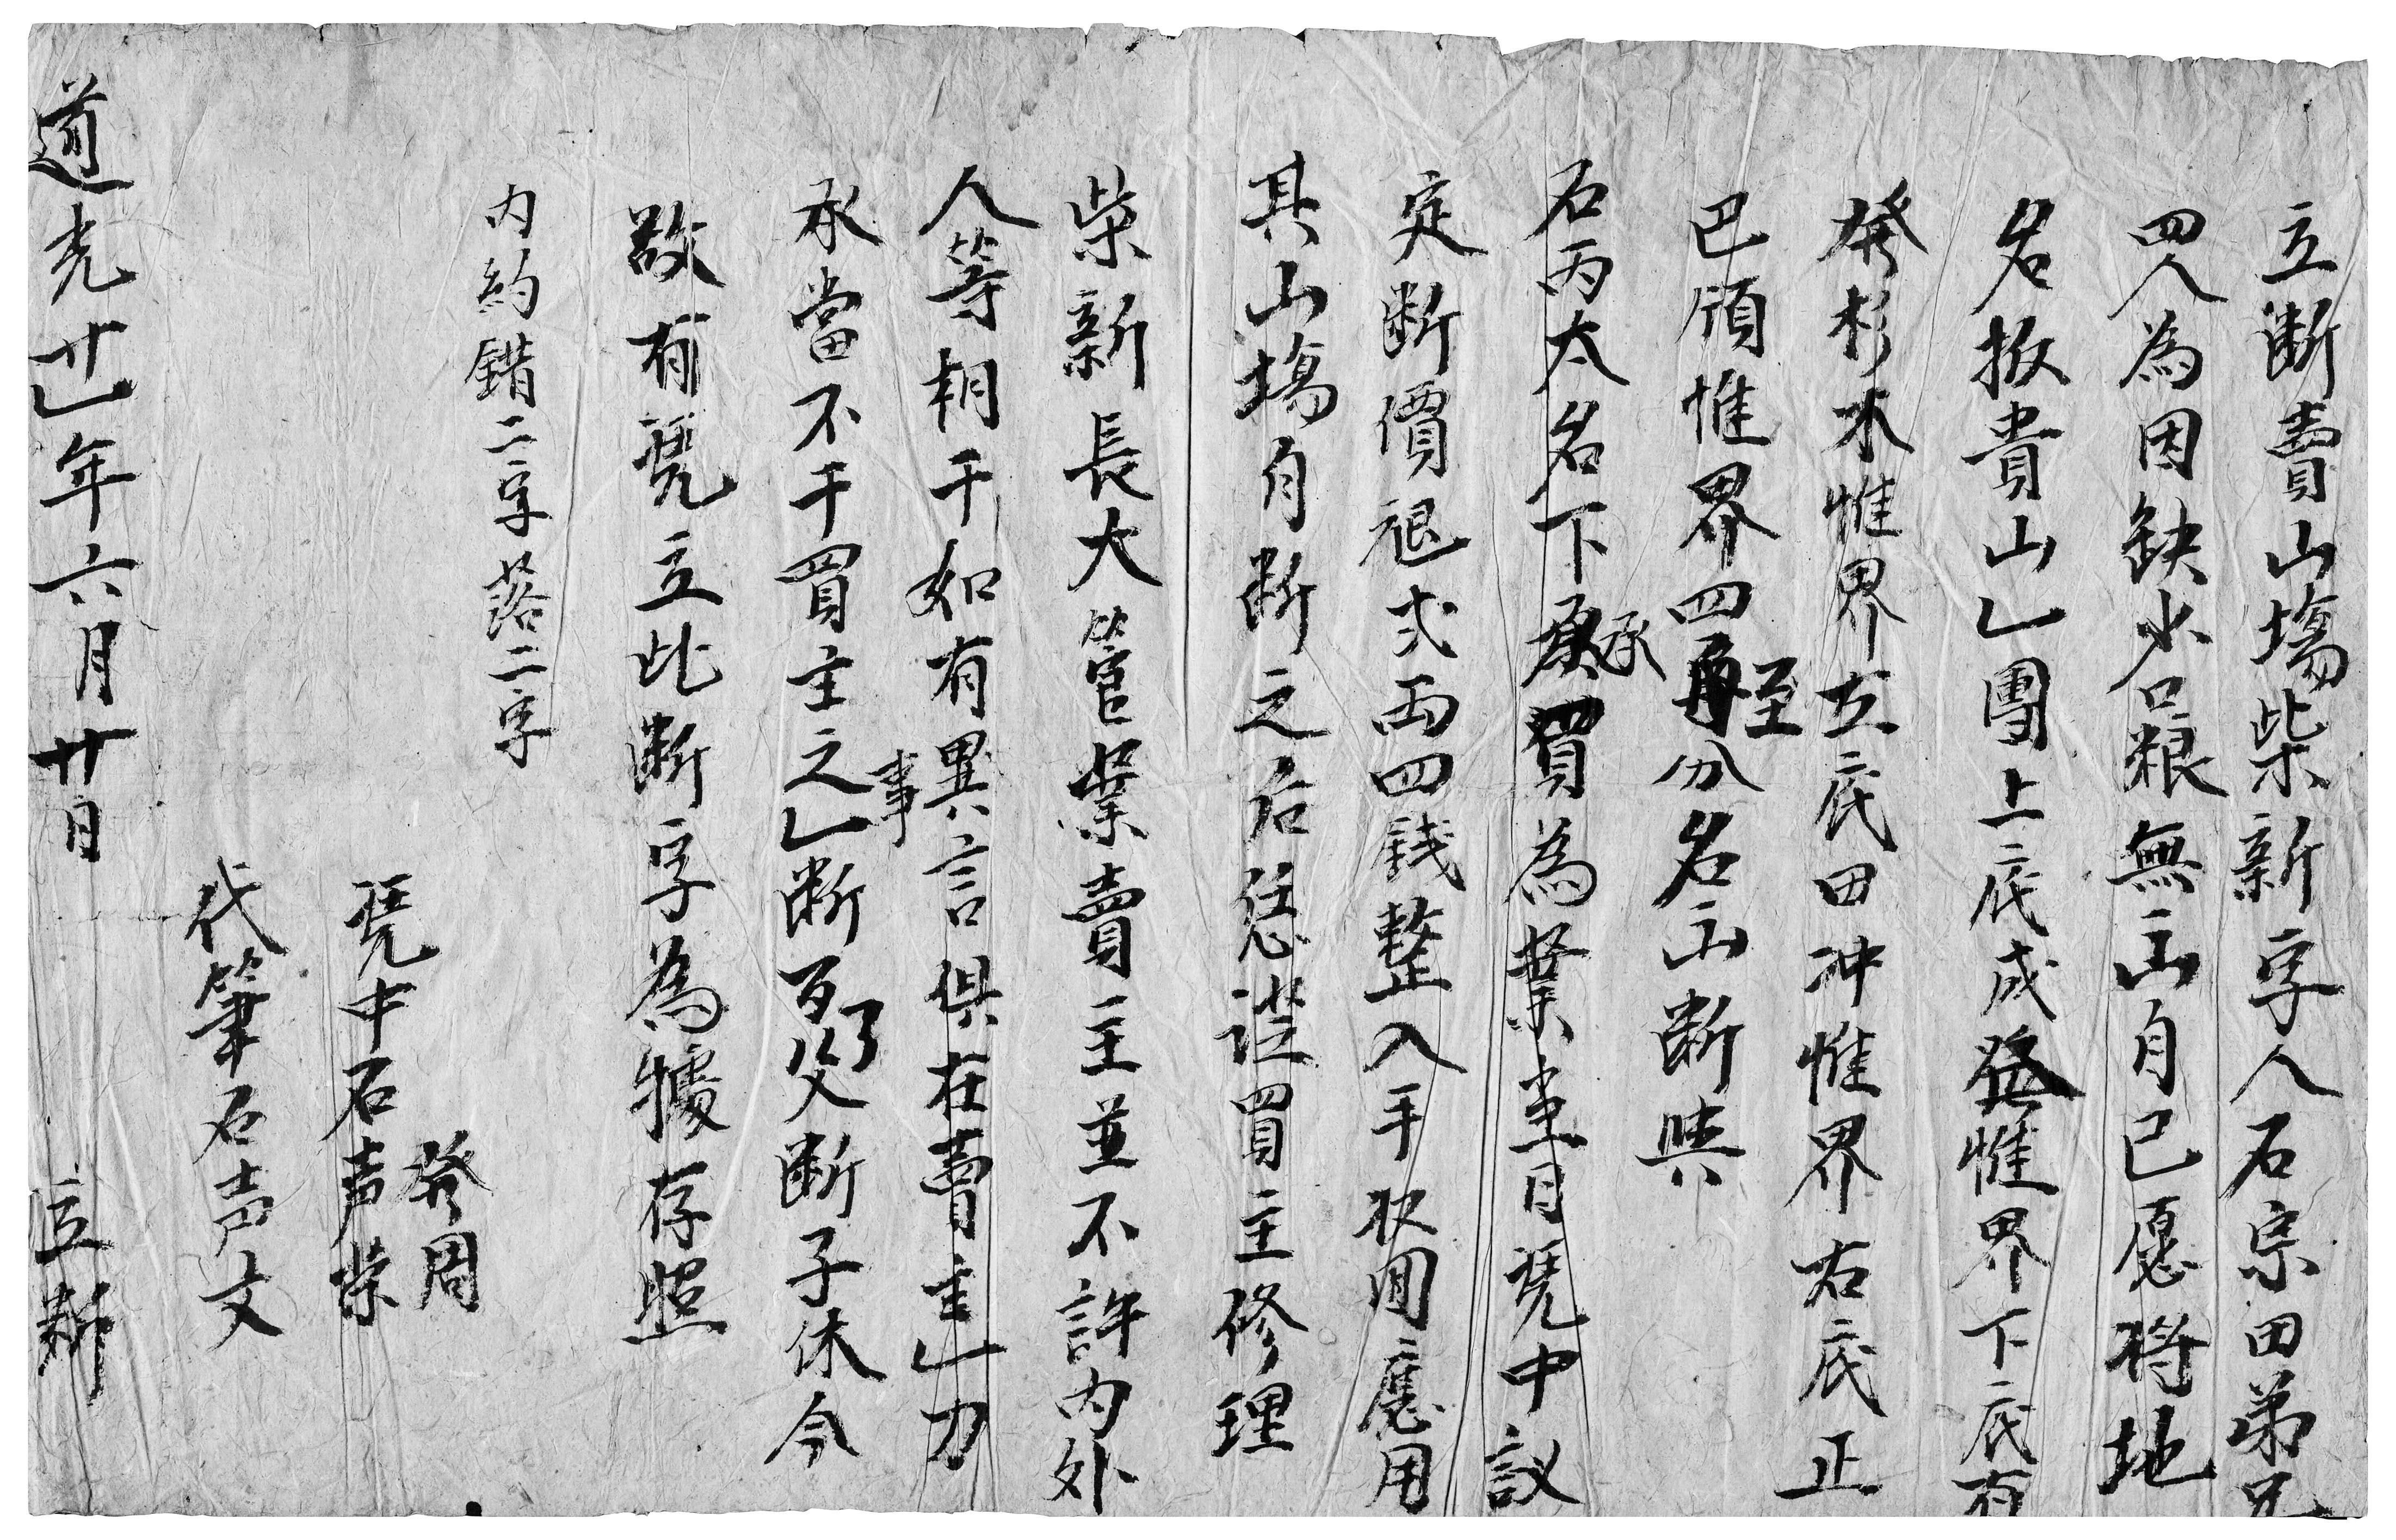 立断賣山塲柴新字人石宗田弟兄
四人為因缺少口粮無云自己愿将地
名扳貴山乙團上底成發惟界下底有
發杉木惟界左底田冲惟界右底正
已頎惟界四至分名山断與
石丙太名下承買為業當日凭中議
定断價退弍両四錢整入手收囬應用
其山塲自断之后恁從買主修理
柴新長大管業賣主並不許内外
人等相干如有異言俱在賣主乙力
承當不干買主之事乙断百了父断子休今
故有凭立此断字為據存照
内約錯二字落二字
發周
凭中石声荣
代筆石声文
道光廿乙年六月廿日 立断